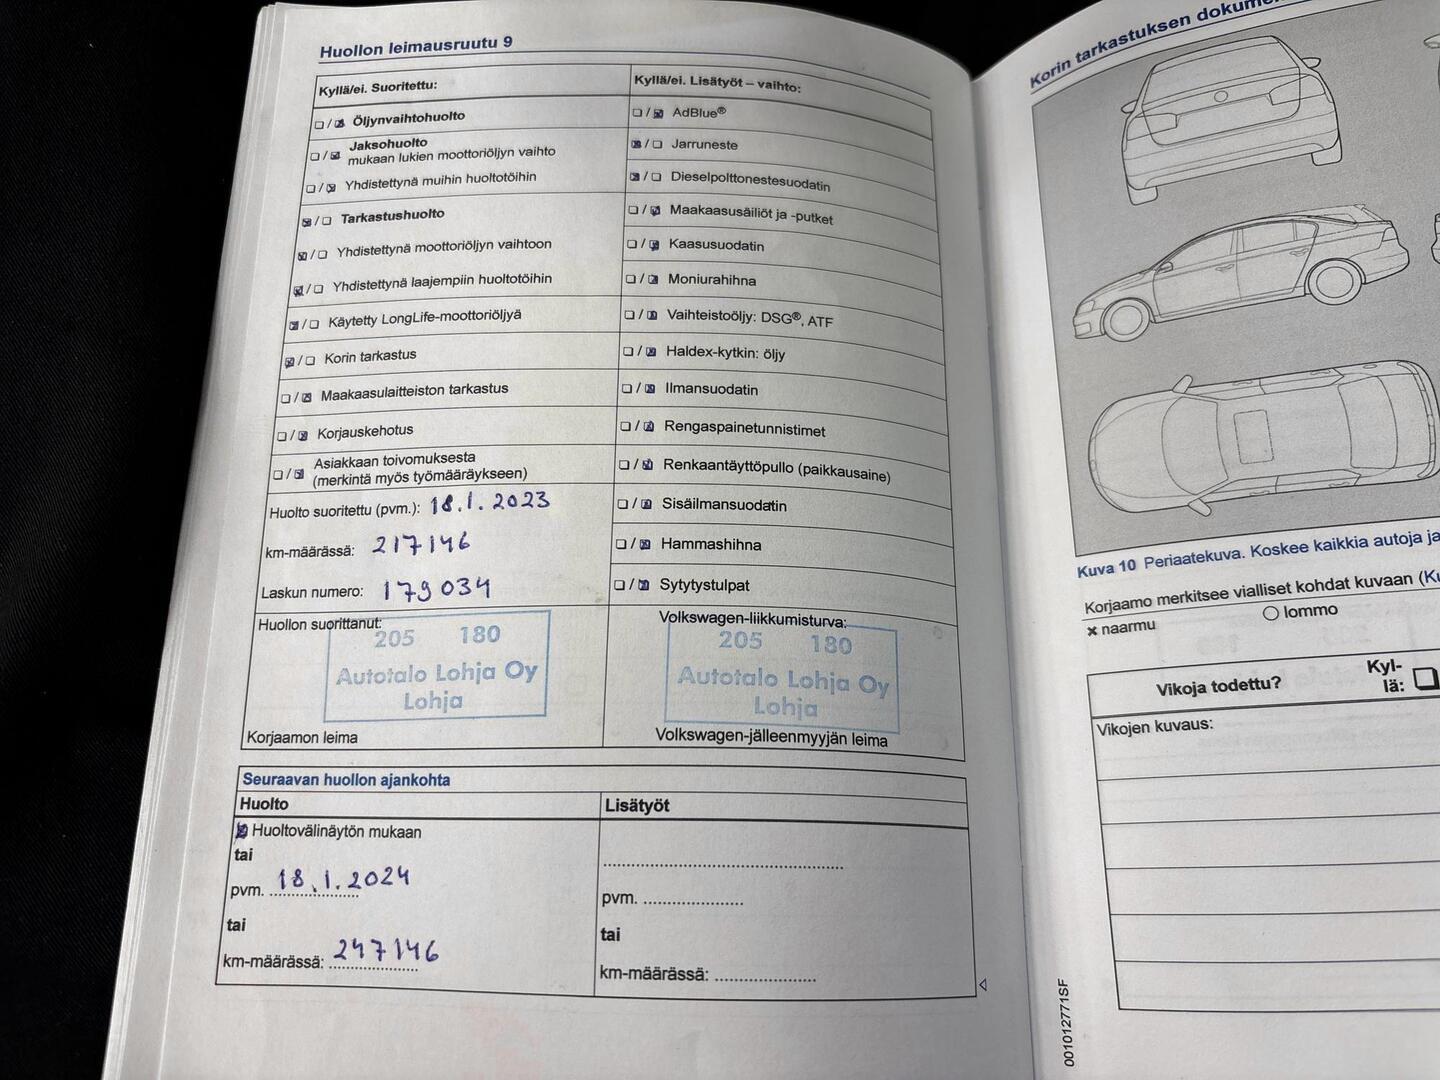 Huollon leimausruutu 9
Kyllä/ei. Suoritettu:
☐ / ☒ Öljynvaihtohuolto
☐ / ☒ Jaksohuolto
mukaan lukien moottoriöljyn vaihto
☐ / ☒ Yhdistettynä muihin huoltotöihin
☒ / ☐ Tarkastushuolto
☒ / ☐ Yhdistettynä moottoriöljyn vaihtoon
☒ / ☐ Yhdistettynä laajempiin huoltotöihin
☒ / ☐ Käytetty LongLife-moottoriöljyä
☒ / ☐ Korin tarkastus
☐ / ☒ Maakaasulaitteiston tarkastus
☐ / ☒ Korjauskehotus
☐ / ☒ Asiakkaan toivomuksesta
(merkintä myös työmääräykseen)
Huolto suoritettu (pvm.): 18.1.2023
km-määrässä: 217146
Laskun numero: 179034
Huollon suorittanut:
205 180
Autotalo Lohja Oy
Lohja
Korjaamon leima
Kyllä/ei. Lisätyöt – vaihto:
☐ / ☒ AdBlue®
☒ / ☐ Jarruneste
☒ / ☐ Dieselpolttonestesuodatin
☐ / ☒ Maakaasusäiliöt ja -putket
☐ / ☒ Kaasusuodatin
☐ / ☒ Moniurahihna
☐ / ☒ Vaihteistoöljy: DSG®, ATF
☐ / ☒ Haldex-kytkin: öljy
☐ / ☒ Ilmansuodatin
☐ / ☒ Rengaspainetunnistimet
☐ / ☒ Renkaantäyttöpullo (paikkausaine)
☐ / ☒ Sisäilmansuodatin
☐ / ☒ Hammashihna
☐ / ☒ Sytytystulpat
Volkswagen-liikkumisturva:
205 180
Autotalo Lohja Oy
Lohja
Volkswagen-jälleenmyyjän leima
Seuraavan huollon ajankohta
Huolto
☒ Huoltovälinäytön mukaan
tai
pvm. 18.1.2024
tai
km-määrässä: 247146
Lisätyöt
pvm.
tai
km-määrässä:
Korin tarkastuksen
Kuva 10 Periaatekuva. Koskee kaikkia autoja
Korjaamo merkitsee vialliset kohdat kuvaan
× naarmu ○ lommo
Vikoja todettu? Kyl-
lä: ☐
Vikojen kuvaus:
001012771SF